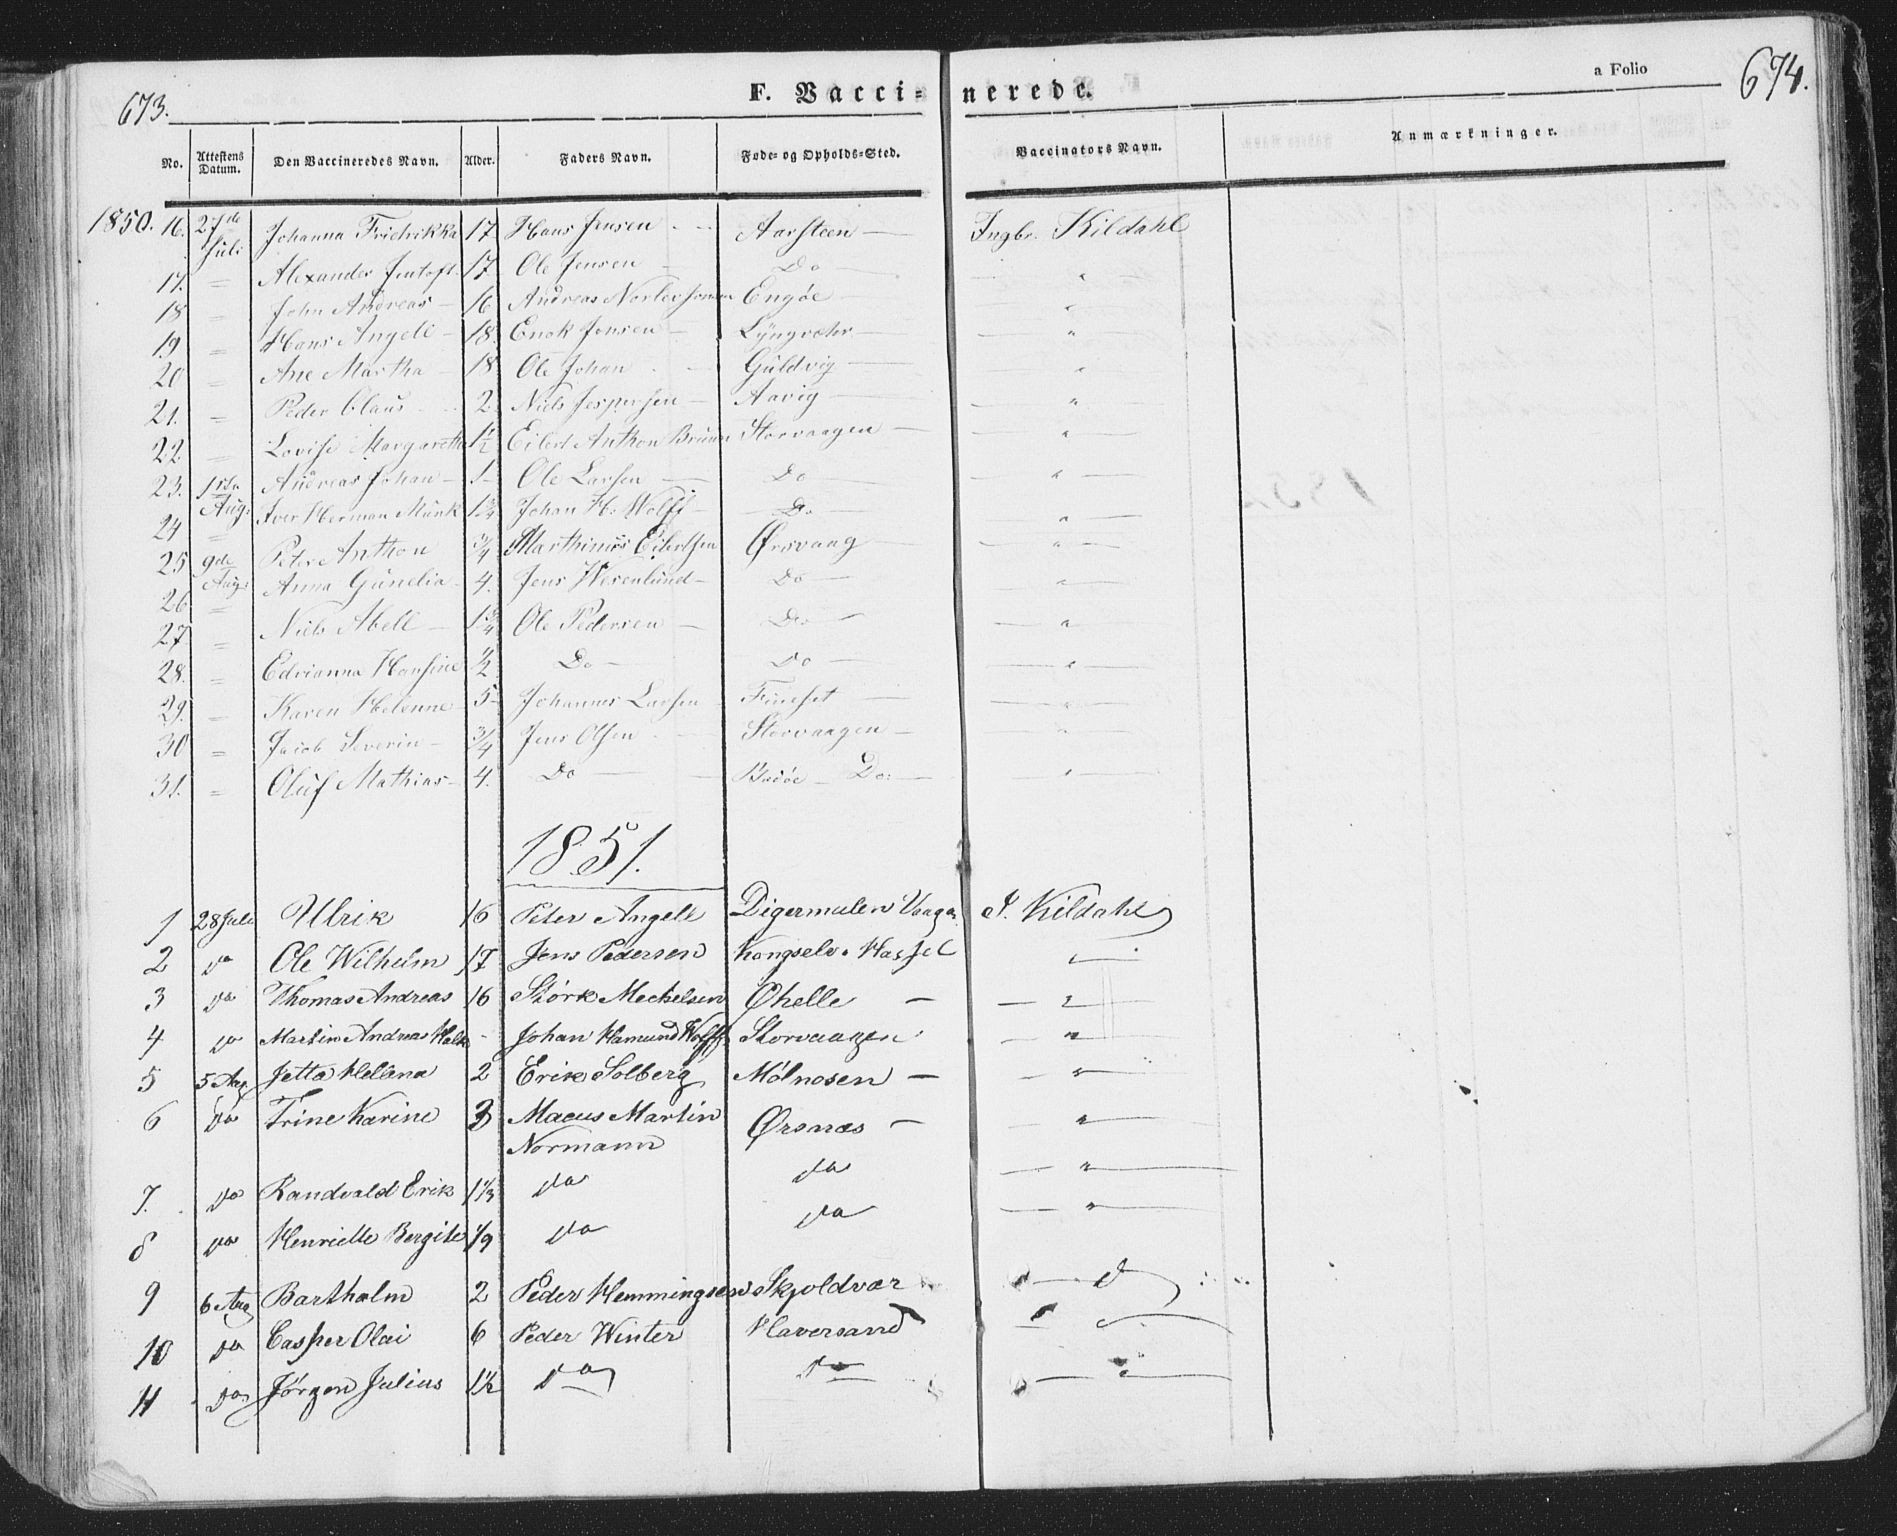 673.
F. Vaccinerede.
a Folio
674.
No. Attestens Datum. Den Vaccineredes Navn. Alder. Faders Navn. Føde- og Opholds-Sted. Vaccinators Navn. Anmærkninger.
1850. 16. 27de Juli Johanna Fridrikka 17 Hans Jensen Aarsteen — Ingbr. Kildahl
17. = Alexander Jentoft 17 Ole Jensen Do — "
18 = John Andreas — 16 Andreas Engöe — "
19 = Hans Angell — 18 Enok Jonsen — Lÿngvær — "
20 = Ane Martha 18 Ole Johan Güldvig — "
21. = Peder Claus 2 Niels Jespersen — Aavig — "
22 = Lovise Margaretha 1½ Eilert Anthon Brüun Storvaagen — "
23. 1ste Aug: Andreas Johan — 1 Ole Larsen Do — "
24 = Iver Herman Münk 1¾ Johan H. Wolff — Do — "
25 9de Aug: Peter Anthon ¾ Marthinus Eilertsen Ørsvaag "
26 = Anna Günelia 4. Jens Wesenlund — Do — "
27. = Niels Abell — 1¾ Ole Pedersen — Do — "
28. = Edrianna Hansine ½ Do — Do — "
29. = Karen Helenne 5 Johannes Larsen Fineset — "
30 = Jacob Severin — ¾ Jens Olsen — Storvaagen — "
31. = Olüf Mathias — 4. Do — Do: — "
1851.
1 28 Juli Ulrik 16 Peter Angell Digermulen Vaagen I. Kildahl
2 do Ole Wilhelm 17 Jens Pedersen Kongselv. Hassel "
3 do Thomas Andreas 16 Størk Mechelsen Øhelle — "
4 do Martin Andreas - Johan Hamund Wolff Storvaagen "
5 5 Aug Jetta Hellena 2 Erik Solberg Mølnosen — "
6 do Trine Karine 3 Macus Martin Normann Ørsnæs — "
7. do Randvald Erik 1⅓ do do "
8 do Henriette Bergite 1/9 do do "
9 6 Aug Bartholm 2 Peder Hemmingsen Skjoldvær
10 do Casper Olai 6 Peder Winter Haversand
11 do Jörgen Julius 1½ do do "